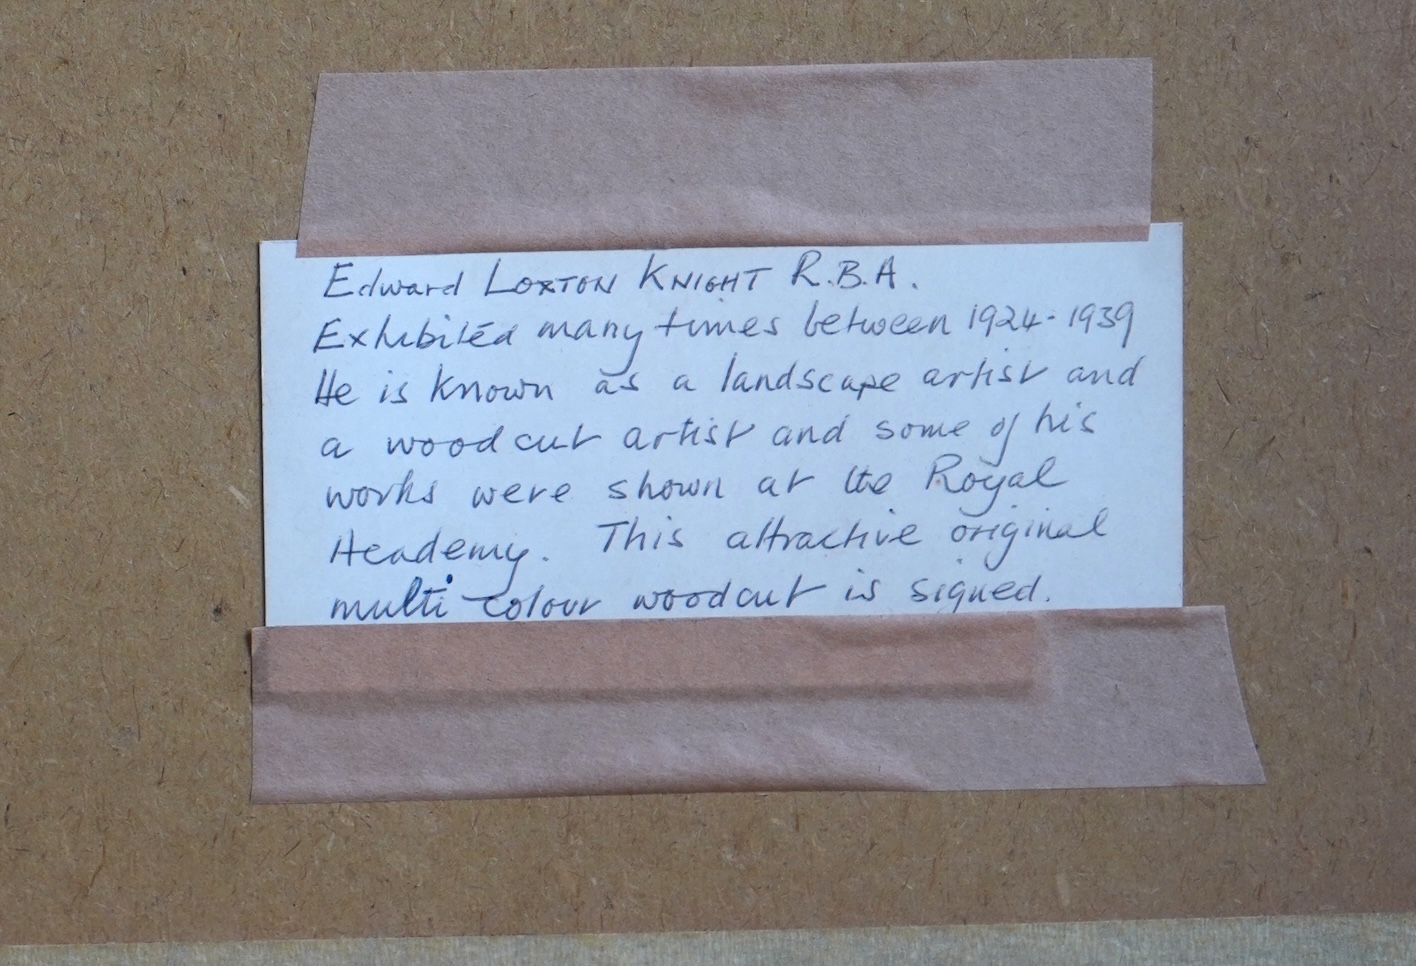 Edward LOXTON KNIGHT R.B.A.
Exhibited many times between 1924-1939
He is known as a landscape artist and
a woodcut artist and some of his
works were shown at the Royal
Academy. This attractive original
multi-colour woodcut is signed.